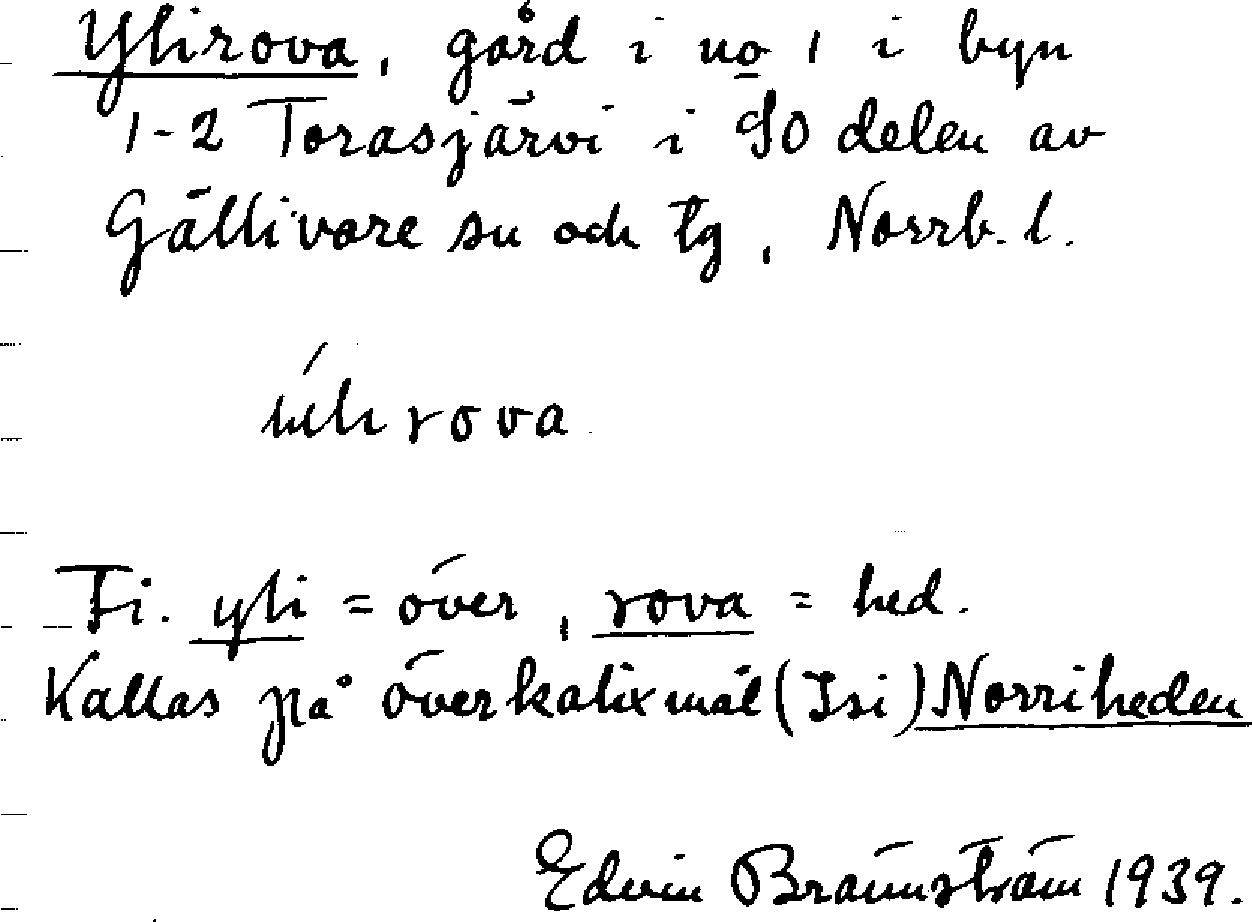 Ylirova, gård i no 1 i byn
1-2 Torasjärvi i SO delen av
Gällivare sn och tg, Norrb. l.
rova
Fi. yli = över, rova = hed.
Kallas på överkalixmål (Isi) Norriheden
Edvin Brännström 1939.